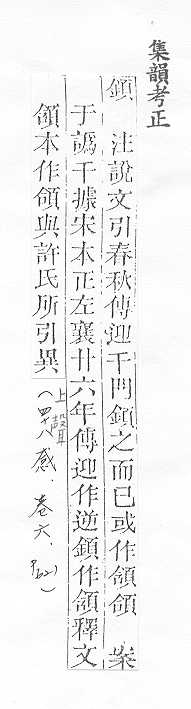 集韻考正
顉 注說文引春秋傳迎干門顉之而已或作頷頜 案
于譌干據宋本正左襄廿六年傳迎作逆顉作頷釋文
頷本作頜與許氏所引異(上聲四十八感、卷六、P621)